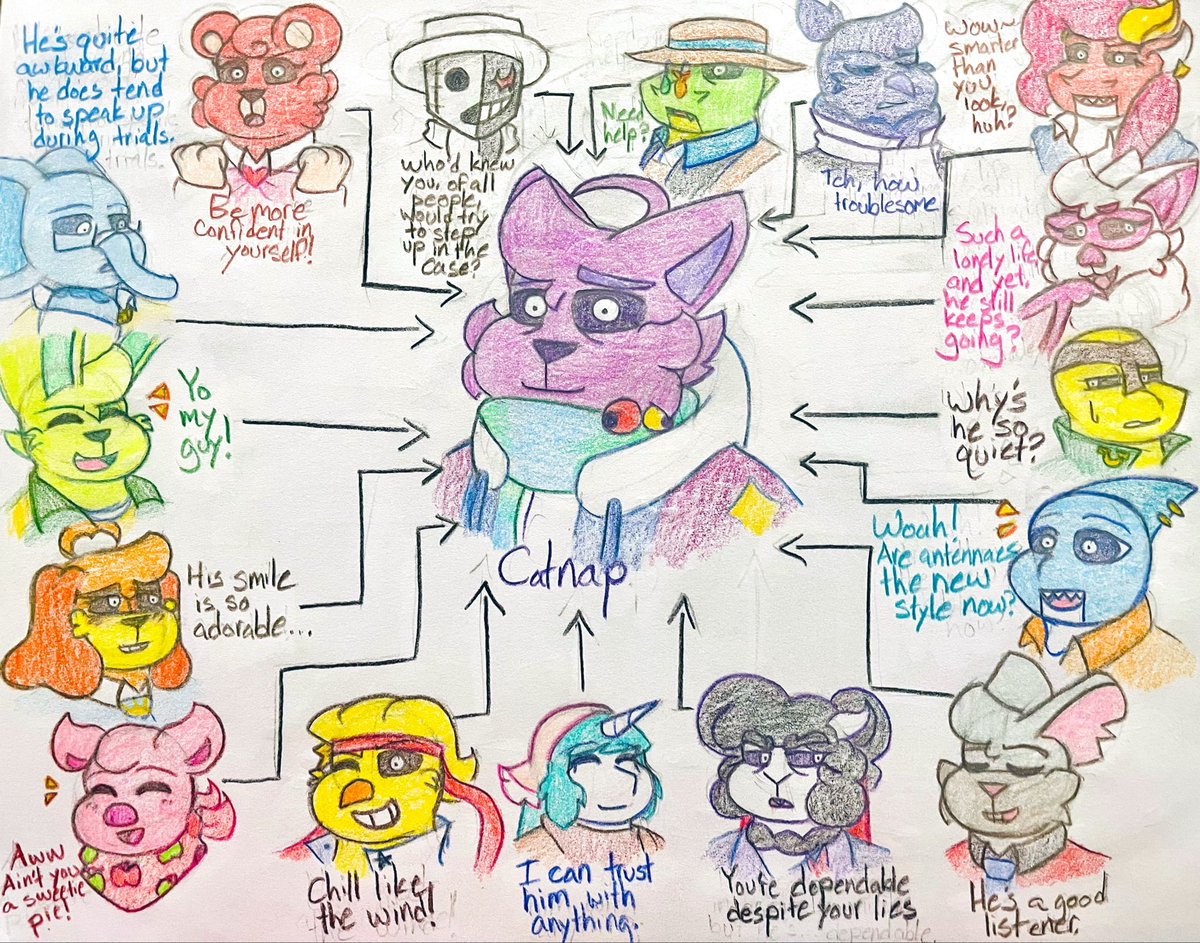 He's quite
awkward, but
he does tend
to speak up
during trials.
Be more
Confident in
yourself!
Who'd knew
you, of all
people,
would try
to step
up in the
case?
Need
help?
Tch, how
troublesome
Wow~
smarter
than
you
look,
huh?
Such a
lonely life
and yet,
he still
keeps
going?
Yo
my
guy!
Why's
he so
quiet?
Woah!
Are antennaes
the new
style now?
His smile
is so
adorable...
Catnap
Aww
Ain't you
a sweetie
pie!
Chill like
the wind!
I can trust
him with
anything.
You're dependable
despite your lies
He's a good
listener.